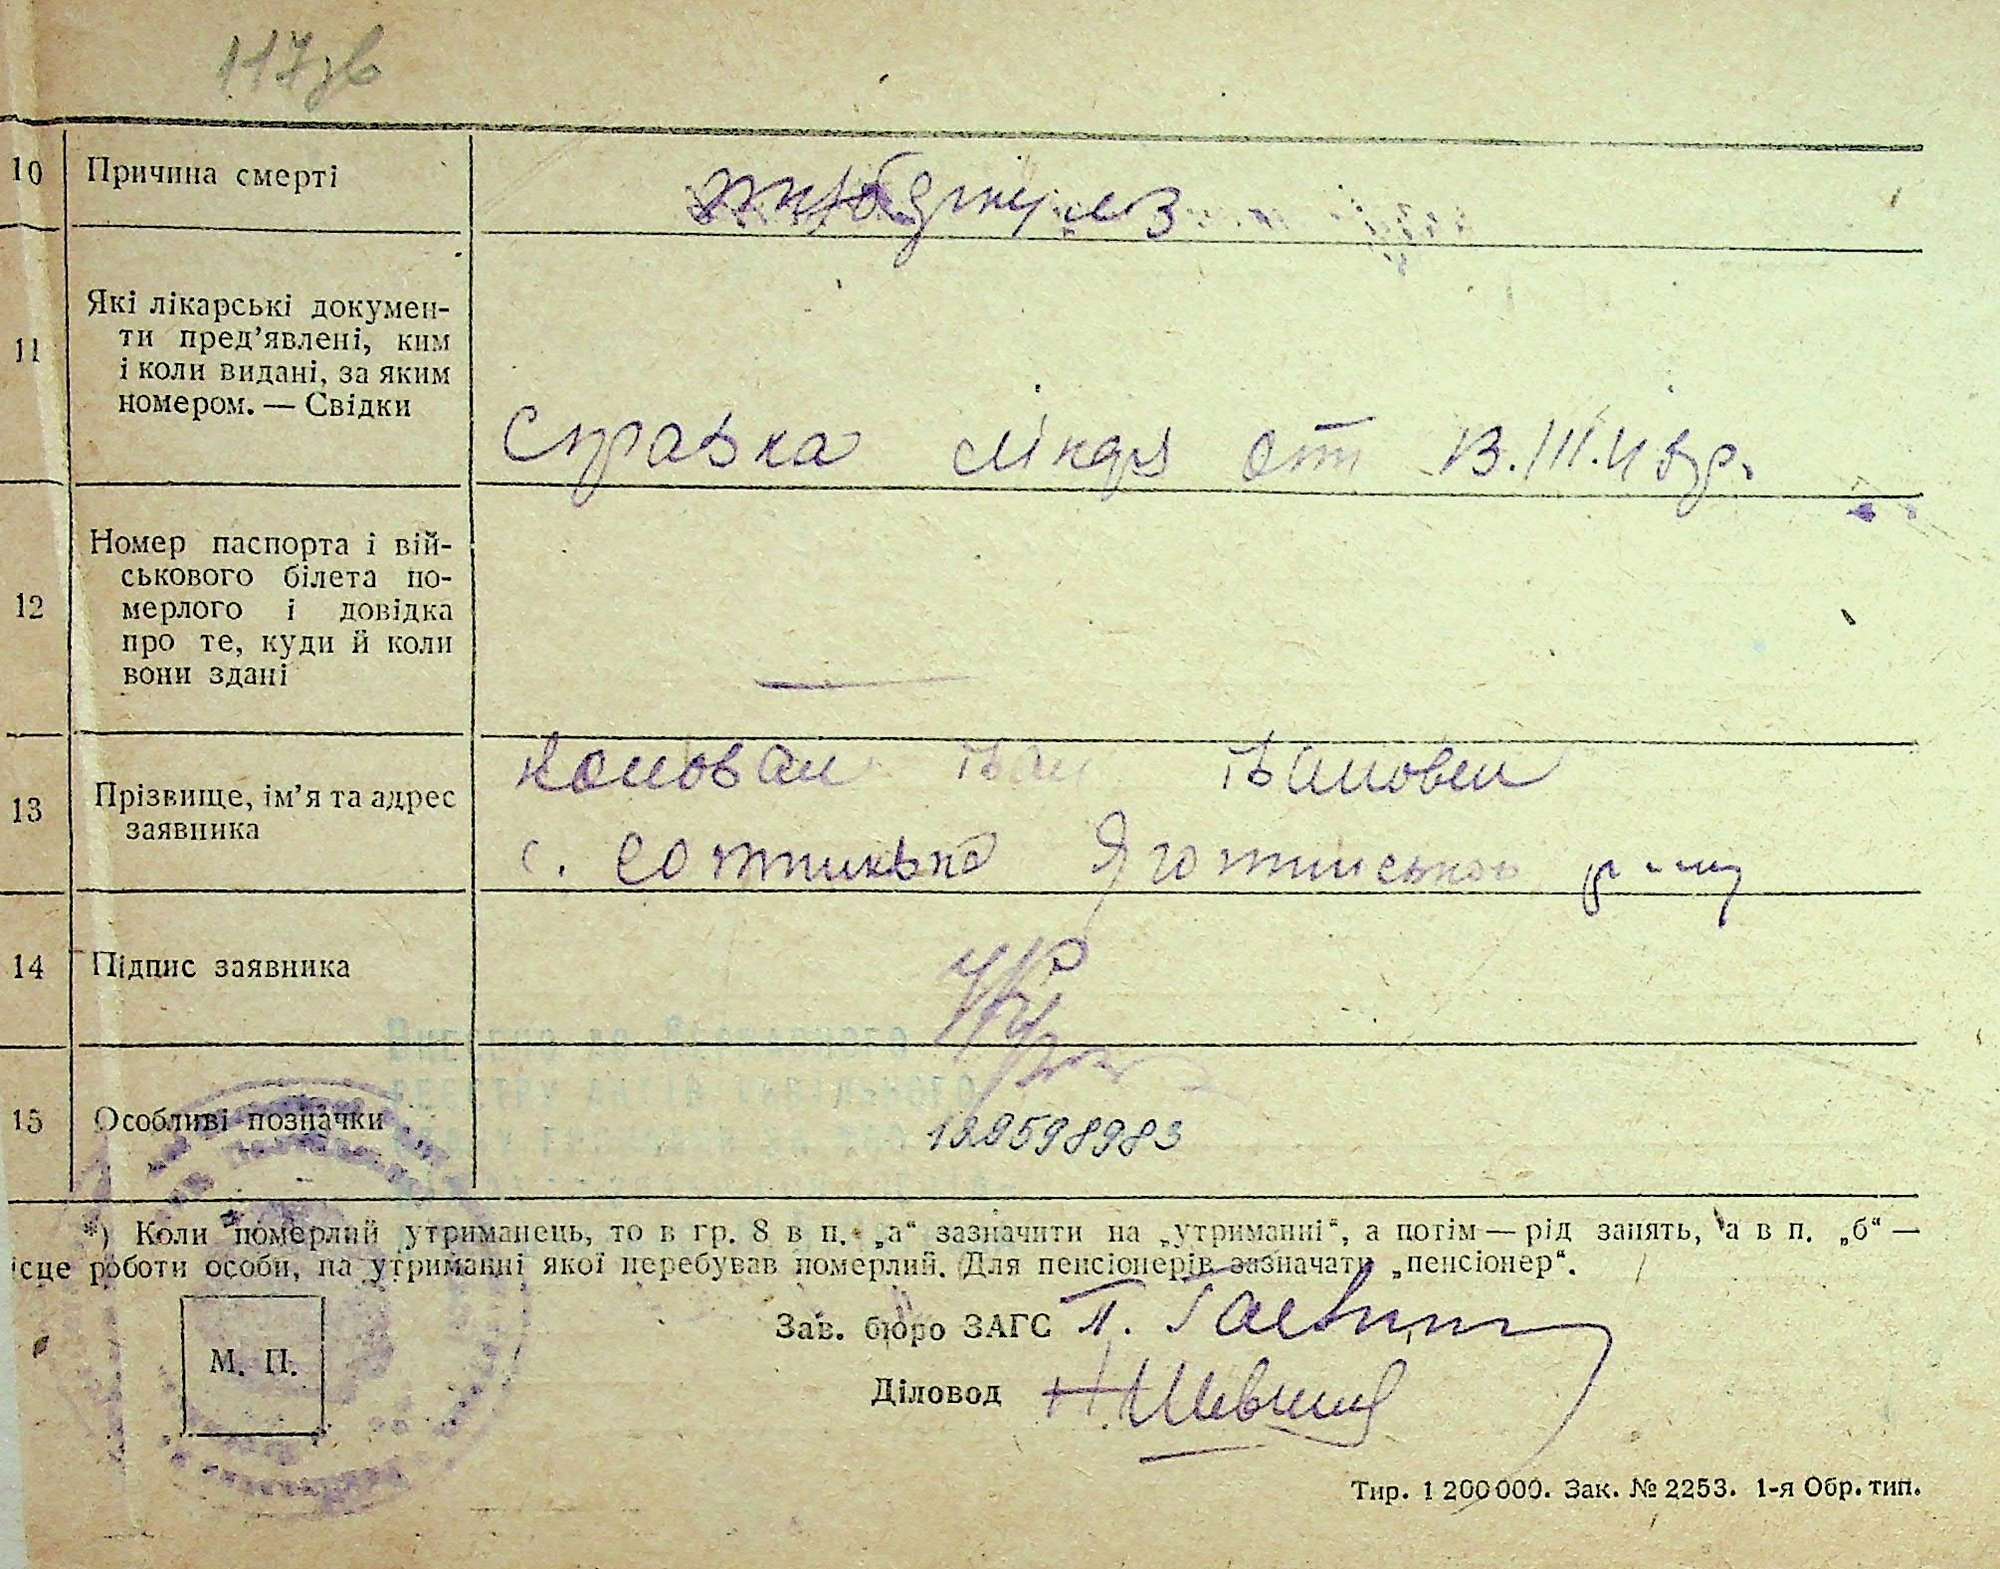 117зв
10 Причина смерті
11 Які лікарські докумен-
ти пред’явлені, ким
і коли видані, за яким
номером. — Свідки
Справка від от
12 Номер паспорта і вій-
ськового білета по-
мерлого і довідка
про те, куди й коли
вони здані
—
13 Прізвище, ім’я та адрес
заявника
Коновал Іван Іванович
с. Сотниківка Яготинського р-ну
14 Підпис заявника
15 Особливі позначки
129598983
*) Коли померлий утриманець, то в гр. 8 в п. „а“ зазначити на „утриманні“, а потім — рід занять, а в п. „б“ —
ісце роботи особи, на утриманні якої перебував померлий. Для пенсіонерів зазначати „пенсіонер“.
Зав. бюро ЗАГС
М. П.
Діловод
Тир. 1 200 000. Зак. № 2253. 1-я Обр. тип.